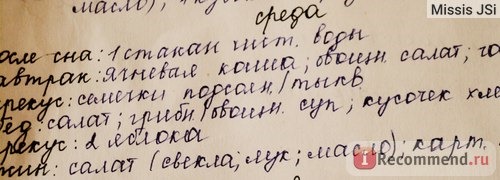 масло);
Missis JSi
среда
осле сна: 1 стакан чист. воды
автрак: ячневая каша; овощн. салат;
рекус: семечки подсолн/тыкв
ед: салат; грибн/овощн. суп; кусочек хле
рекус: 2 яблока
жин: салат (свекла; лук; масло); карт.
iRecommend.ru